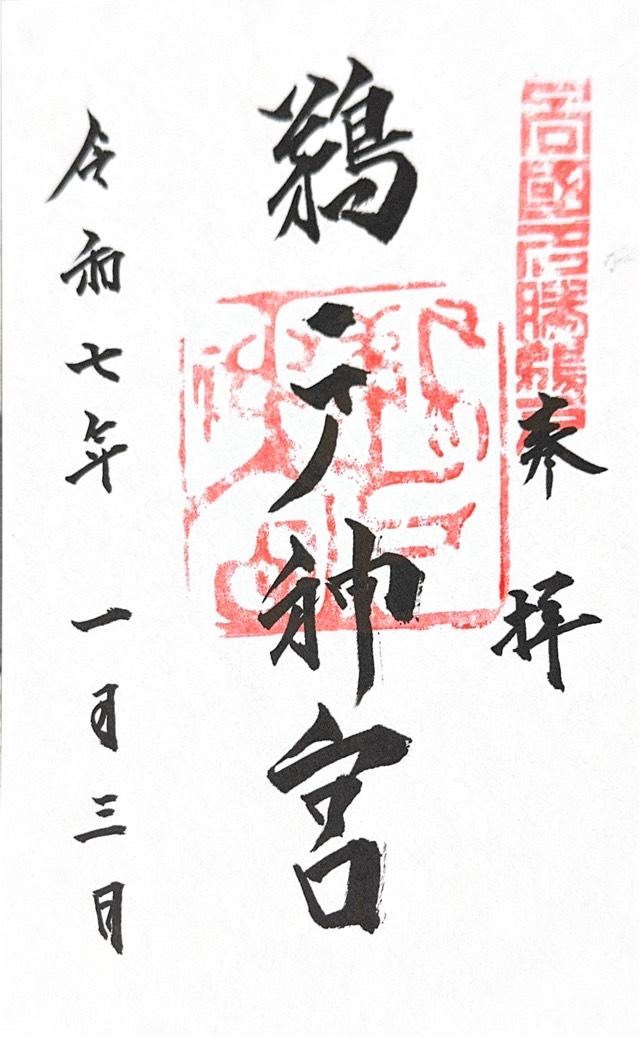 日向國名勝鵜戸
奉拝
鵜戸神宮
令和七年一月三日